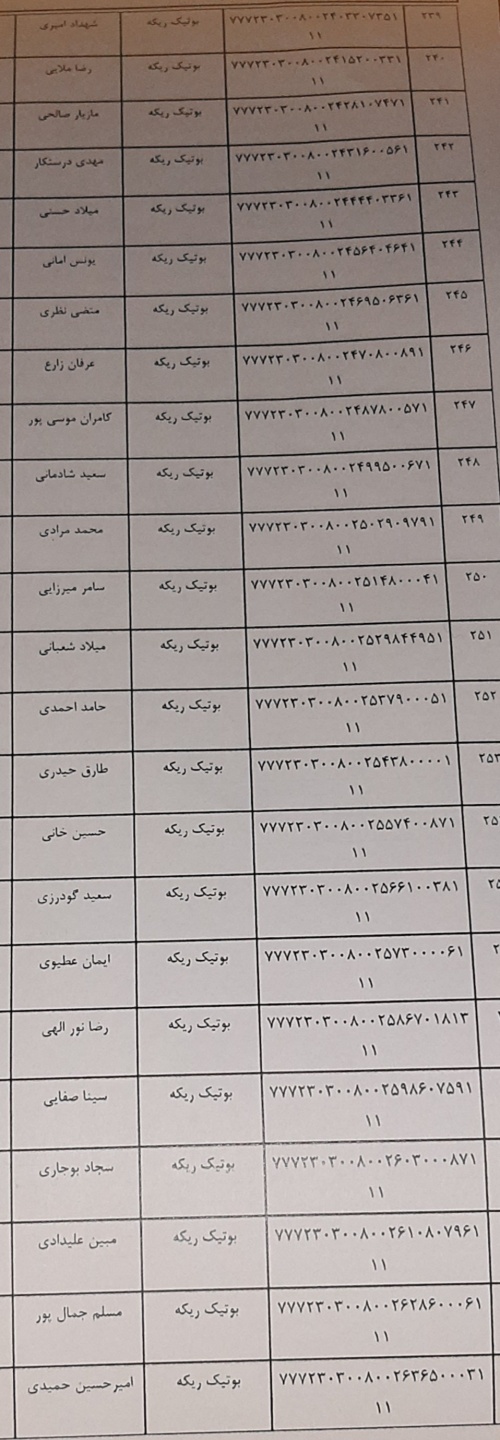 ۲۳۹ ۷۷۷۲۳۰۳۰۰۸۰۰۲۴۰۳۳۰۷۳۵۱ بوتیک ریکه شهداد امیری
۱۱
۲۴۰ ۷۷۷۲۳۰۳۰۰۸۰۰۲۴۱۵۲۰۰۳۳۱ بوتیک ریکه رضا ملایی
۱۱
۲۴۱ ۷۷۷۲۳۰۳۰۰۸۰۰۲۴۲۸۱۰۷۴۷۱ بوتیک ریکه مازیار صالحی
۱۱
۲۴۲ ۷۷۷۲۳۰۳۰۰۸۰۰۲۴۳۱۶۰۰۵۶۱ بوتیک ریکه مهدی درستکار
۱۱
۲۴۳ ۷۷۷۲۳۰۳۰۰۸۰۰۲۴۴۴۴۰۳۳۶۱ بوتیک ریکه میلاد حسنی
۱۱
۲۴۴ ۷۷۷۲۳۰۳۰۰۸۰۰۲۴۵۶۴۰۴۶۴۱ بوتیک ریکه یونس امانی
۱۱
۲۴۵ ۷۷۷۲۳۰۳۰۰۸۰۰۲۴۶۹۵۰۶۳۶۱ بوتیک ریکه متضی نظری
۱۱
۲۴۶ ۷۷۷۲۳۰۳۰۰۸۰۰۲۴۷۰۸۰۰۸۹۱ بوتیک ریکه عرفان زارع
۱۱
۲۴۷ ۷۷۷۲۳۰۳۰۰۸۰۰۲۴۸۷۸۰۰۵۷۱ بوتیک ریکه کامران موسی پور
۱۱
۲۴۸ ۷۷۷۲۳۰۳۰۰۸۰۰۲۴۹۹۵۰۰۶۷۱ بوتیک ریکه سعید شادمانی
۱۱
۲۴۹ ۷۷۷۲۳۰۳۰۰۸۰۰۲۵۰۲۹۰۹۷۹۱ بوتیک ریکه محمد مرادی
۱۱
۲۵۰ ۷۷۷۲۳۰۳۰۰۸۰۰۲۵۱۴۸۰۰۰۴۱ بوتیک ریکه سامر میرزایی
۱۱
۲۵۱ ۷۷۷۲۳۰۳۰۰۸۰۰۲۵۲۹۸۴۴۹۵۱ بوتیک ریکه میلاد شعبانی
۱۱
۲۵۲ ۷۷۷۲۳۰۳۰۰۸۰۰۲۵۳۷۹۰۰۰۵۱ بوتیک ریکه حامد احمدی
۱۱
۲۵۳ ۷۷۷۲۳۰۳۰۰۸۰۰۲۵۴۳۸۰۰۰۰۱ بوتیک ریکه طارق حیدری
۱۱
۷۷۷۲۳۰۳۰۰۸۰۰۲۵۵۷۴۰۰۸۷۱ بوتیک ریکه حسین خانی
۱۱
۷۷۷۲۳۰۳۰۰۸۰۰۲۵۶۶۱۰۰۳۸۱ بوتیک ریکه سعید گودرزی
۱۱
۷۷۷۲۳۰۳۰۰۸۰۰۲۵۷۳۰۰۰۰۶۱ بوتیک ریکه ایمان عطیوی
۱۱
۷۷۷۲۳۰۳۰۰۸۰۰۲۵۸۶۷۰۱۸۱۳ بوتیک ریکه رضا نور الهی
۱۱
۷۷۷۲۳۰۳۰۰۸۰۰۲۵۹۸۶۰۷۵۹۱ بوتیک ریکه سینا صفایی
۱۱
۷۷۷۲۳۰۳۰۰۸۰۰۲۶۰۳۰۰۰۸۷۱ بوتیک ریکه سجاد بوجاری
۱۱
۷۷۷۲۳۰۳۰۰۸۰۰۲۶۱۰۸۰۷۹۶۱ بوتیک ریکه مبین علیدادی
۱۱
۷۷۷۲۳۰۳۰۰۸۰۰۲۶۲۸۶۰۰۰۶۱ بوتیک ریکه مسلم جمال پور
۱۱
۷۷۷۲۳۰۳۰۰۸۰۰۲۶۳۶۵۰۰۰۳۱ بوتیک ریکه امیرحسین حمیدی
۱۱